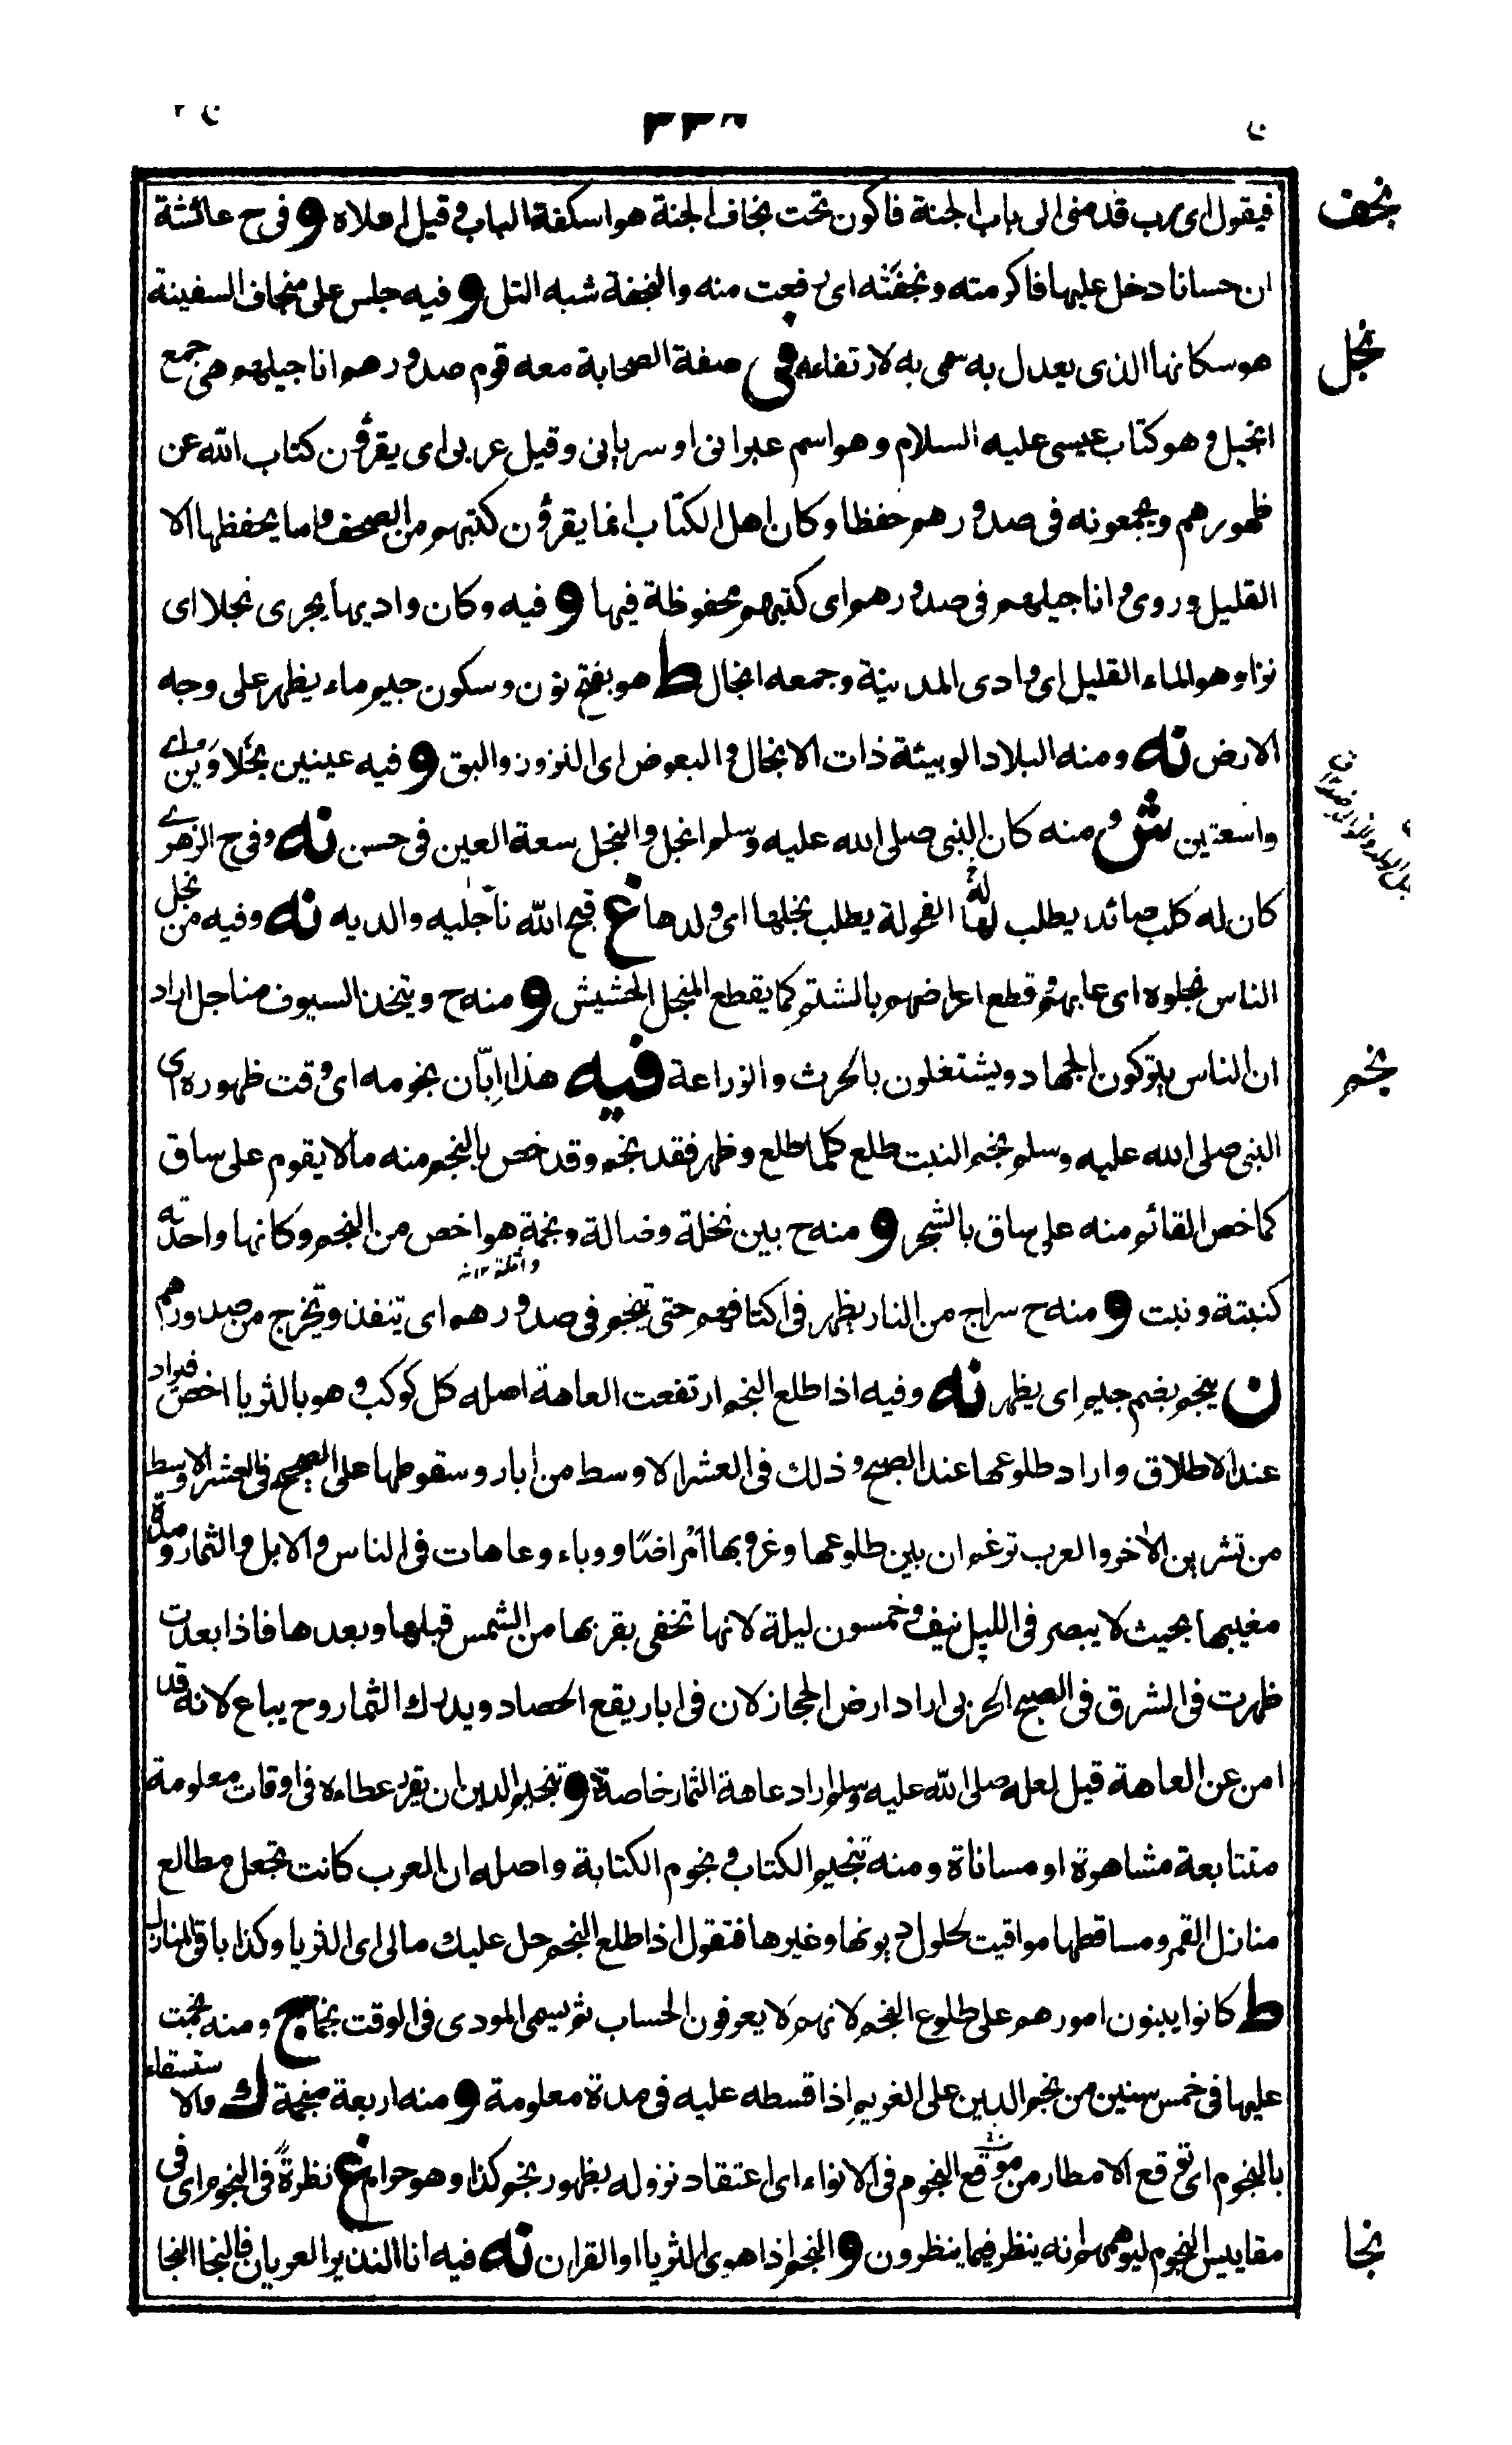 ن ٣٣٦ ن ٢
نجف
فيقول اى رب قدمنى الى باب الجنة فاكون تحت نجاف الجنة هو اسكفة الباب وقيل اعلاه و فى ح عائشة
ان حسانا دخل عليها فاكرمته ونجفته اى رفعت منه والنجفة شبه التل و فيه جلس على منجاف السفينة
نجل
هو سكانها الذى يعدل به سمى به لارتفاعه فى صفة الصحابة معه قوم صدورهم اناجيلهم هى جمع
انجيل وهو كتاب عيسى عليه السلام وهو اسم عبرانى او سريانى وقيل عربى اى يقرؤن كتاب الله عن
ظهورهم ويجمعونه فى صدورهم حفظا وكان اهل الكتاب انما يقرؤن كتبهم من الصحف واما يحفظها الا
القليل وروى واناجيلهم فى صدورهم اى كتبهم محفوظة فيها و فيه وكان واديها يجرى نجلا اى
نزا وهو الماء القليل اى وادى المدينة وجمعه انجال ط هو بفتح نون وسكون جيم ماء يظهر على وجه
الارض نه ومنه البلاد الوبيئة ذات الانجال والبعوض اى النزوز والبق و فيه عينين نجلاوين اے
واسعتين ش ومنه كان النبى صلى الله عليه وسلم انجل والنجل سعة العين فى حسن نه وفى ح الزهرے
كان له كلب صائد يطلب لها الفحولة يطلب نجلها اى ولدها غ قبح الله ناجليه والديه نه وفيه من نجل
الناس نجلوه اى عابهم وقطع اعراضهم بالشتم كما يقطع المنجل الحشيش و منه ح ويتخذ السيوف مناجل اراد
نجم
ان الناس يتركون الجهاد ويشتغلون بالحرث والزراعة فيه هذا ابّان نجومه اى وقت ظهوره اى
النبى صلى الله عليه وسلم نجم النبت طلع كلما طلع وظهر فقد نجم وقد خص بالنجم منه ما لا يقوم على ساق
كما خص القائم منه على ساق بالشجر و منه ح بين نخلة وضالة ونجمة هو اخص من النجم وكانها واحدته
كنبتة ونبت و منه ح سراج من النار يظهر فى اكتافهم حتى ينجم فى صدورهم اى تنفذ وتخرج من صدورهم
ن ينجم بضم جيم اى يظهر نه وفيه اذا طلع النجم ارتفعت العاهة اصله كل كوكب وهو بالثريا اخص فيراد
عند الاطلاق واراد طلوعها عند الصبح وذلك فى العشر الاوسط من ايار وسقوطها على الصبح فى العشر الاوسط
من تشرين الآخر والعرب تزعم ان بين طلوعها وغروبها امراضًا ووباء وعاهات فى الناس والابل والثمار ومدة
مغيبها بحيث لا يبصر فى الليل نيف وخمسون ليلة لانها تخفى بقربها من الشمس قبلها وبعدها فاذا بعدت
ظهرت فى الشرق فى الصبح الحربى اراد ارض الحجاز لان فى ايار يقع الحصاد ويدرك الثمار وح يباع لانه قد
امن عن العاهة قيل لعله صلى الله عليه وسلم اراد عاهة الثمار خاصة و تنجيم الدين ان يقرر عطاءه فى اوقات معلومة
متتابعة مشاهرة او مساناة ومنه تنجيم الكتاب ونجوم الكتابة واصله ان العرب كانت تجعل مطالع
منازل القمر ومساقطها مواقيت لحلول ديونها وغيرها فتقول اذا طلع النجم حل عليك مالى اى الثريا وكذا باقى المنازل
ط كانوا يبنون امورهم على طلوع النجم لانهم لا يعرفون الحساب ثم سمى المودى فى الوقت نجما ج ومنه نجمت
عليها فى خمس سنين من نجم الدين على الغريم اذا قسطه عليه فى مدة معلومة و منه اربعة منجمة ك والاستسقاء
بالنجوم اى توقع الامطار من موقع النجوم فى الانواء اى اعتقاد نزوله بظهور نجم كذا وهو حرام غ نظرةً فى النجوم اى فى
نجا
مقاييس النجوم ليوهمهم انه ينظر فيما ينظرون و النجم اذا هوى الثريا او القران نه فيه انا النذير العريان فالنجا النجا